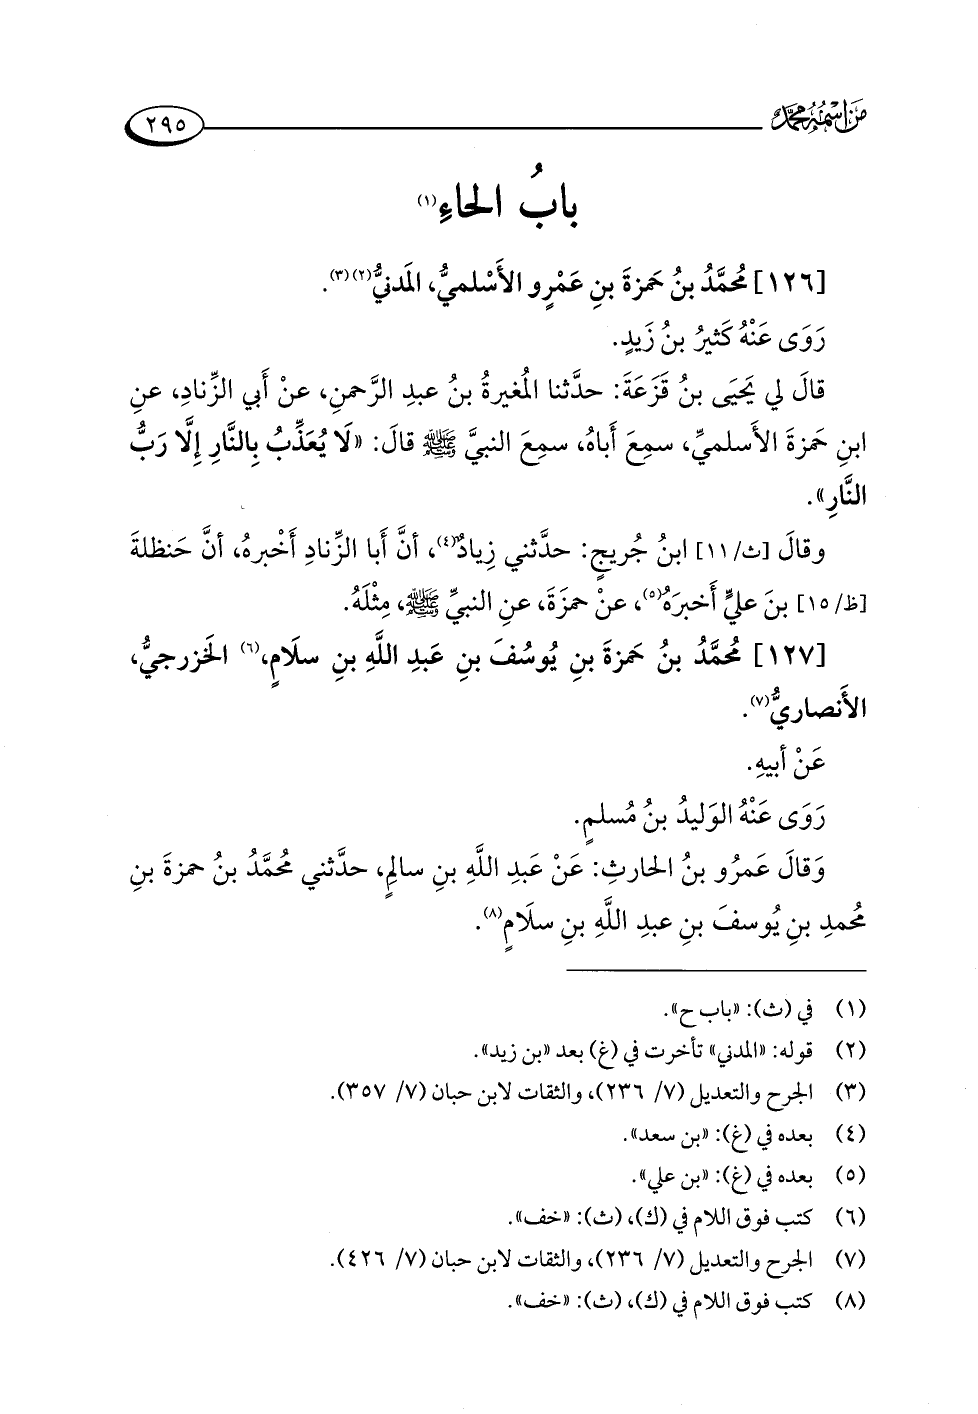 مَن اسْمُهُ مُحَمَّد
٢٩٥
بابُ الحاءِ(١)
[١٢٦] مُحمَّدُ بنُ حَمزةَ بنِ عَمْرٍو الأَسْلميُّ، المَدنيُّ(٢)(٣).
رَوَى عَنْهُ كَثيرُ بنُ زَيدٍ.
قالَ لي يَحيَى بنُ قَزَعَةَ: حدَّثنا المُغيرةُ بنُ عبدِ الرَّحمنِ، عنْ أبي الزِّنادِ، عنِ
ابنِ حَمزةَ الأَسلميِّ، سمِعَ أَباهُ، سمِعَ النبيَّ ﷺ قالَ: «لَا يُعَذِّبُ بِالنَّارِ إِلَّا رَبُّ
النَّارِ».
وقالَ [ث/١١] ابنُ جُريجٍ: حدَّثني زِيادٌ(٤)، أنَّ أَبا الزِّنادِ أَخْبرهُ، أنَّ حَنظلةَ
[ظ/١٥] بنَ عليٍّ أَخبرَهُ(٥)، عنْ حمزَةَ، عنِ النبيِّ ﷺ، مِثْلَهُ.
[١٢٧] مُحمَّدُ بنُ حَمزةَ بنِ يُوسُفَ بنِ عَبدِ اللَّهِ بنِ سلَامٍ،(٦) الخَزرجيُّ،
الأَنصاريُّ(٧).
عَنْ أبيهِ.
رَوَى عَنْهُ الوَليدُ بنُ مُسلمٍ.
وَقالَ عَمرُو بنُ الحارثِ: عَنْ عَبدِ اللَّهِ بنِ سالمٍ، حدَّثني مُحمَّدُ بنُ حمزةَ بنِ
مُحمدِ بنِ يُوسفَ بنِ عبدِ اللَّهِ بنِ سلَامٍ(٨).
(١) في (ث): «باب ح».
(٢) قوله: «المدني» تأخرت في (غ) بعد «بن زيد».
(٣) الجرح والتعديل (٧/ ٢٣٦)، والثقات لابن حبان (٧/ ٣٥٧).
(٤) بعده في (غ): «بن سعد».
(٥) بعده في (غ): «بن علي».
(٦) كتب فوق اللام في (ك)، (ث): «خف».
(٧) الجرح والتعديل (٧/ ٢٣٦)، والثقات لابن حبان (٧/ ٤٢٦).
(٨) كتب فوق اللام في (ك)، (ث): «خف».